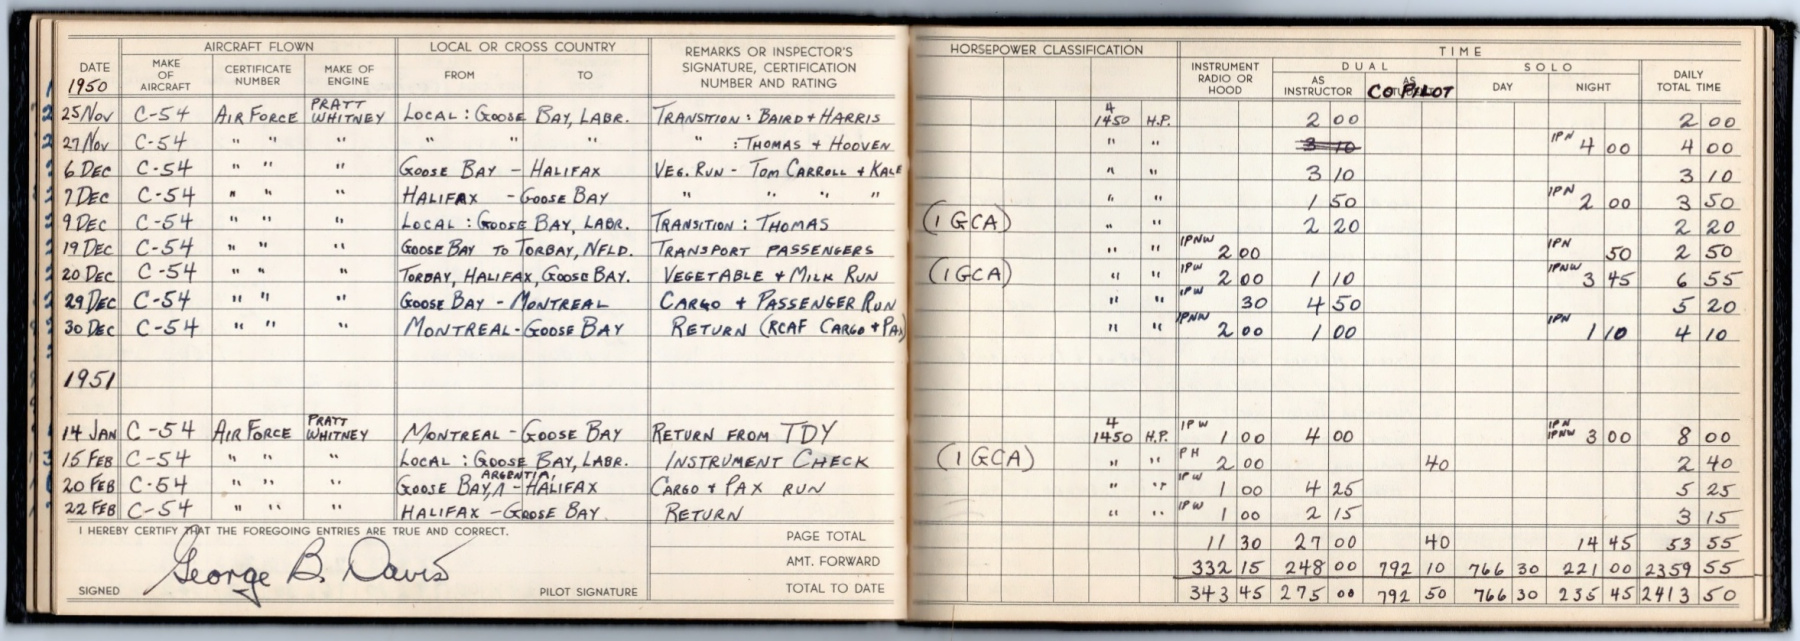 AIRCRAFT FLOWN LOCAL OR CROSS COUNTRY REMARKS OR INSPECTOR'S SIGNATURE, CERTIFICATION NUMBER AND RATING HORSEPOWER CLASSIFICATION TIME
DATE 1950 MAKE OF AIRCRAFT CERTIFICATE NUMBER MAKE OF ENGINE FROM TO INSTRUMENT RADIO OR HOOD DUAL AS INSTRUCTOR AS CO PILOT SOLO DAY NIGHT DAILY TOTAL TIME
25 Nov C-54 AIR FORCE PRATT WHITNEY LOCAL : GOOSE BAY, LABR. TRANSITION : BAIRD + HARRIS 4 1450 H.P. 2 00 2 00
27 Nov C-54 " " " " " " " : THOMAS + HOOVEN " " 3 10 IPN 4 00 4 00
6 DEC C-54 " " " GOOSE BAY - HALIFAX VEG. RUN - TOM CARROLL + KALE " " 3 10 3 10
7 DEC C-54 " " " HALIFAX - GOOSE BAY " " " " " " 1 50 IPN 2 00 3 50
9 DEC C-54 " " " LOCAL : GOOSE BAY, LABR. TRANSITION : THOMAS (1 GCA) " " 2 20 2 20
19 DEC C-54 " " " GOOSE BAY TO TORBAY, NFLD. TRANSPORT PASSENGERS " " IPNW 2 00 IPN 50 2 50
20 DEC C-54 " " " TORBAY, HALIFAX, GOOSE BAY. VEGETABLE + MILK RUN (1 GCA) " " IPW 2 00 1 10 IPNW 3 45 6 55
29 DEC C-54 " " " GOOSE BAY - MONTREAL CARGO + PASSENGER RUN " " IPW 30 4 50 5 20
30 DEC C-54 " " " MONTREAL - GOOSE BAY RETURN (RCAF CARGO + PAX) " " IPNW 2 00 1 00 IPN 1 10 4 10
1951
14 JAN C-54 AIR FORCE PRATT WHITNEY MONTREAL - GOOSE BAY RETURN FROM TDY 4 1450 H.P. IPW 1 00 4 00 IPN IPNW 3 00 8 00
15 FEB C-54 " " " LOCAL : GOOSE BAY, LABR. INSTRUMENT CHECK (1 GCA) " " PH 2 00 40 2 40
20 FEB C-54 " " " GOOSE BAY, ARGENTIA, - HALIFAX CARGO + PAX RUN " " IPW 1 00 4 25 5 25
22 FEB C-54 " " " HALIFAX - GOOSE BAY RETURN " " IPW 1 00 2 15 3 15
I HEREBY CERTIFY THAT THE FOREGOING ENTRIES ARE TRUE AND CORRECT. PAGE TOTAL 11 30 27 00 40 14 45 53 55
AMT. FORWARD 332 15 248 00 792 10 766 30 221 00 2359 55
SIGNED George B. Davis PILOT SIGNATURE TOTAL TO DATE 343 45 275 00 792 50 766 30 235 45 2413 50